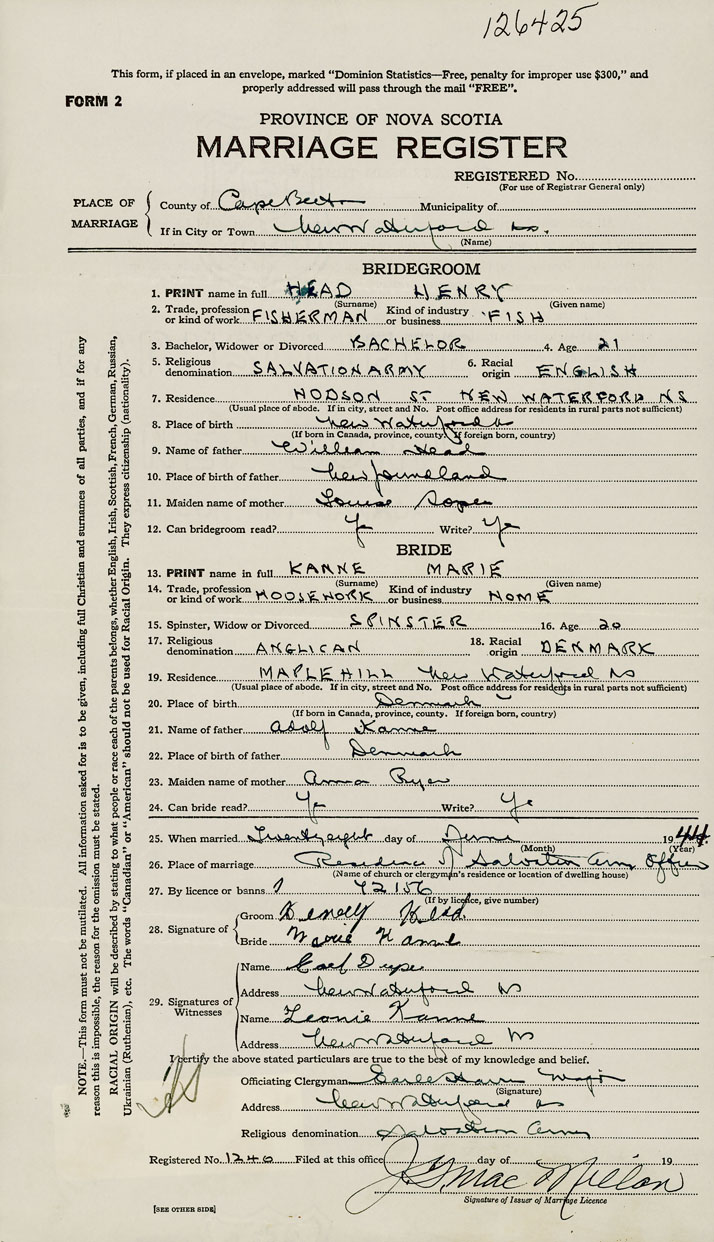 126425
This form, if placed in an envelope, marked "Dominion Statistics—Free, penalty for improper use $300," and
properly addressed will pass through the mail "FREE".
FORM 2
PROVINCE OF NOVA SCOTIA
MARRIAGE REGISTER
REGISTERED No.
(For use of Registrar General only)
PLACE OF MARRIAGE
County of Cape Breton Municipality of
If in City or Town New Waterford NS.
(Name)
BRIDEGROOM
1. PRINT name in full HEAD HENRY
(Surname) (Given name)
2. Trade, profession or kind of work FISHERMAN Kind of industry or business FISH
3. Bachelor, Widower or Divorced BACHELOR 4. Age 21
5. Religious denomination SALVATION ARMY 6. Racial origin ENGLISH
7. Residence HODSON ST NEW WATERFORD NS
(Usual place of abode. If in city, street and No. Post office address for residents in rural parts not sufficient)
8. Place of birth New Waterford NS
(If born in Canada, province, county. If foreign born, country)
9. Name of father William Head
10. Place of birth of father Newfoundland
11. Maiden name of mother Louise Soper
12. Can bridegroom read? Ye Write? Ye
BRIDE
13. PRINT name in full KANNE MARIE
(Surname) (Given name)
14. Trade, profession or kind of work HOOSEWORK Kind of industry or business HOME
15. Spinster, Widow or Divorced SPINSTER 16. Age 20
17. Religious denomination ANGLICAN 18. Racial origin DENMARK
19. Residence MAPLE HILL New Waterford NS
(Usual place of abode. If in city, street and No. Post office address for residents in rural parts not sufficient)
20. Place of birth Denmark
(If born in Canada, province, county. If foreign born, country)
21. Name of father Adolf Kanne
22. Place of birth of father Denmark
23. Maiden name of mother Anna
24. Can bride read? Ye Write? Ye
25. When married Twentyeight day of June 1944.
(Month) (Year)
26. Place of marriage Residence of Salvation Army Officer
(Name of church or clergyman's residence or location of dwelling house)
27. By licence or banns 72156
(If by licence, give number)
28. Signature of
Groom Henery Head.
Bride Marie Kanne
29. Signatures of Witnesses
Name
Address New Waterford NS
Name Leonie Kanne
Address New Waterford NS
I certify the above stated particulars are true to the best of my knowledge and belief.
Officiating Clergyman Earle Major
(Signature)
Address New Waterford NS
Religious denomination Salvation Army
Registered No. 1240 Filed at this office day of 19
J G MacMillan
Signature of Issuer of Marriage Licence
[SEE OTHER SIDE]
NOTE.—This form must not be mutilated. All information asked for is to be given, including full Christian and surnames of all parties, and if for any
reason this is impossible, the reason for the omission must be stated.
RACIAL ORIGIN will be described by stating to what people or race each of the parents belongs, whether English, Irish, Scottish, French, German, Russian,
Ukrainian (Ruthenian), etc. The words "Canadian" or "American" should not be used for Racial Origin. They express citizenship (nationality).